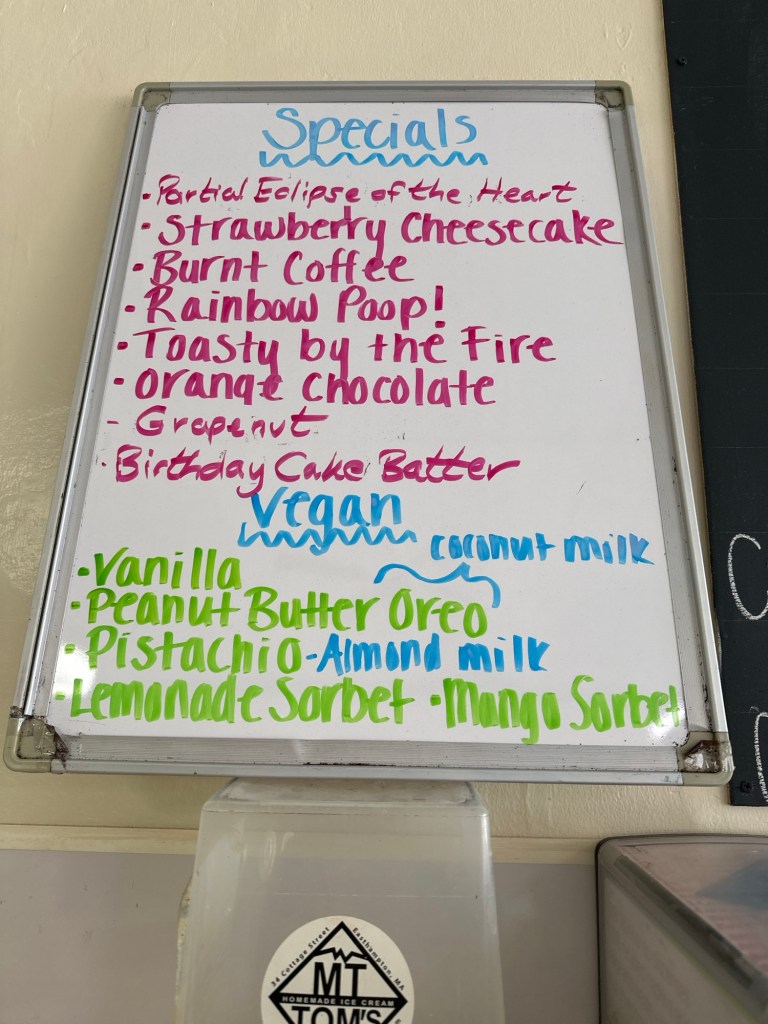 Specials
• Partial Eclipse of the Heart
• Strawberry Cheesecake
• Burnt Coffee
• Rainbow Poop!
• Toasty by the Fire
• Orange Chocolate
- Grapenut
• Birthday Cake Batter
Vegan
coconut milk
• Vanilla
• Peanut Butter Oreo
• Pistachio - Almond milk
• Lemonade Sorbet • Mango Sorbet
34 Cottage Street Easthampton, MA
MT
HOMEMADE ICE CREAM
TOM'S